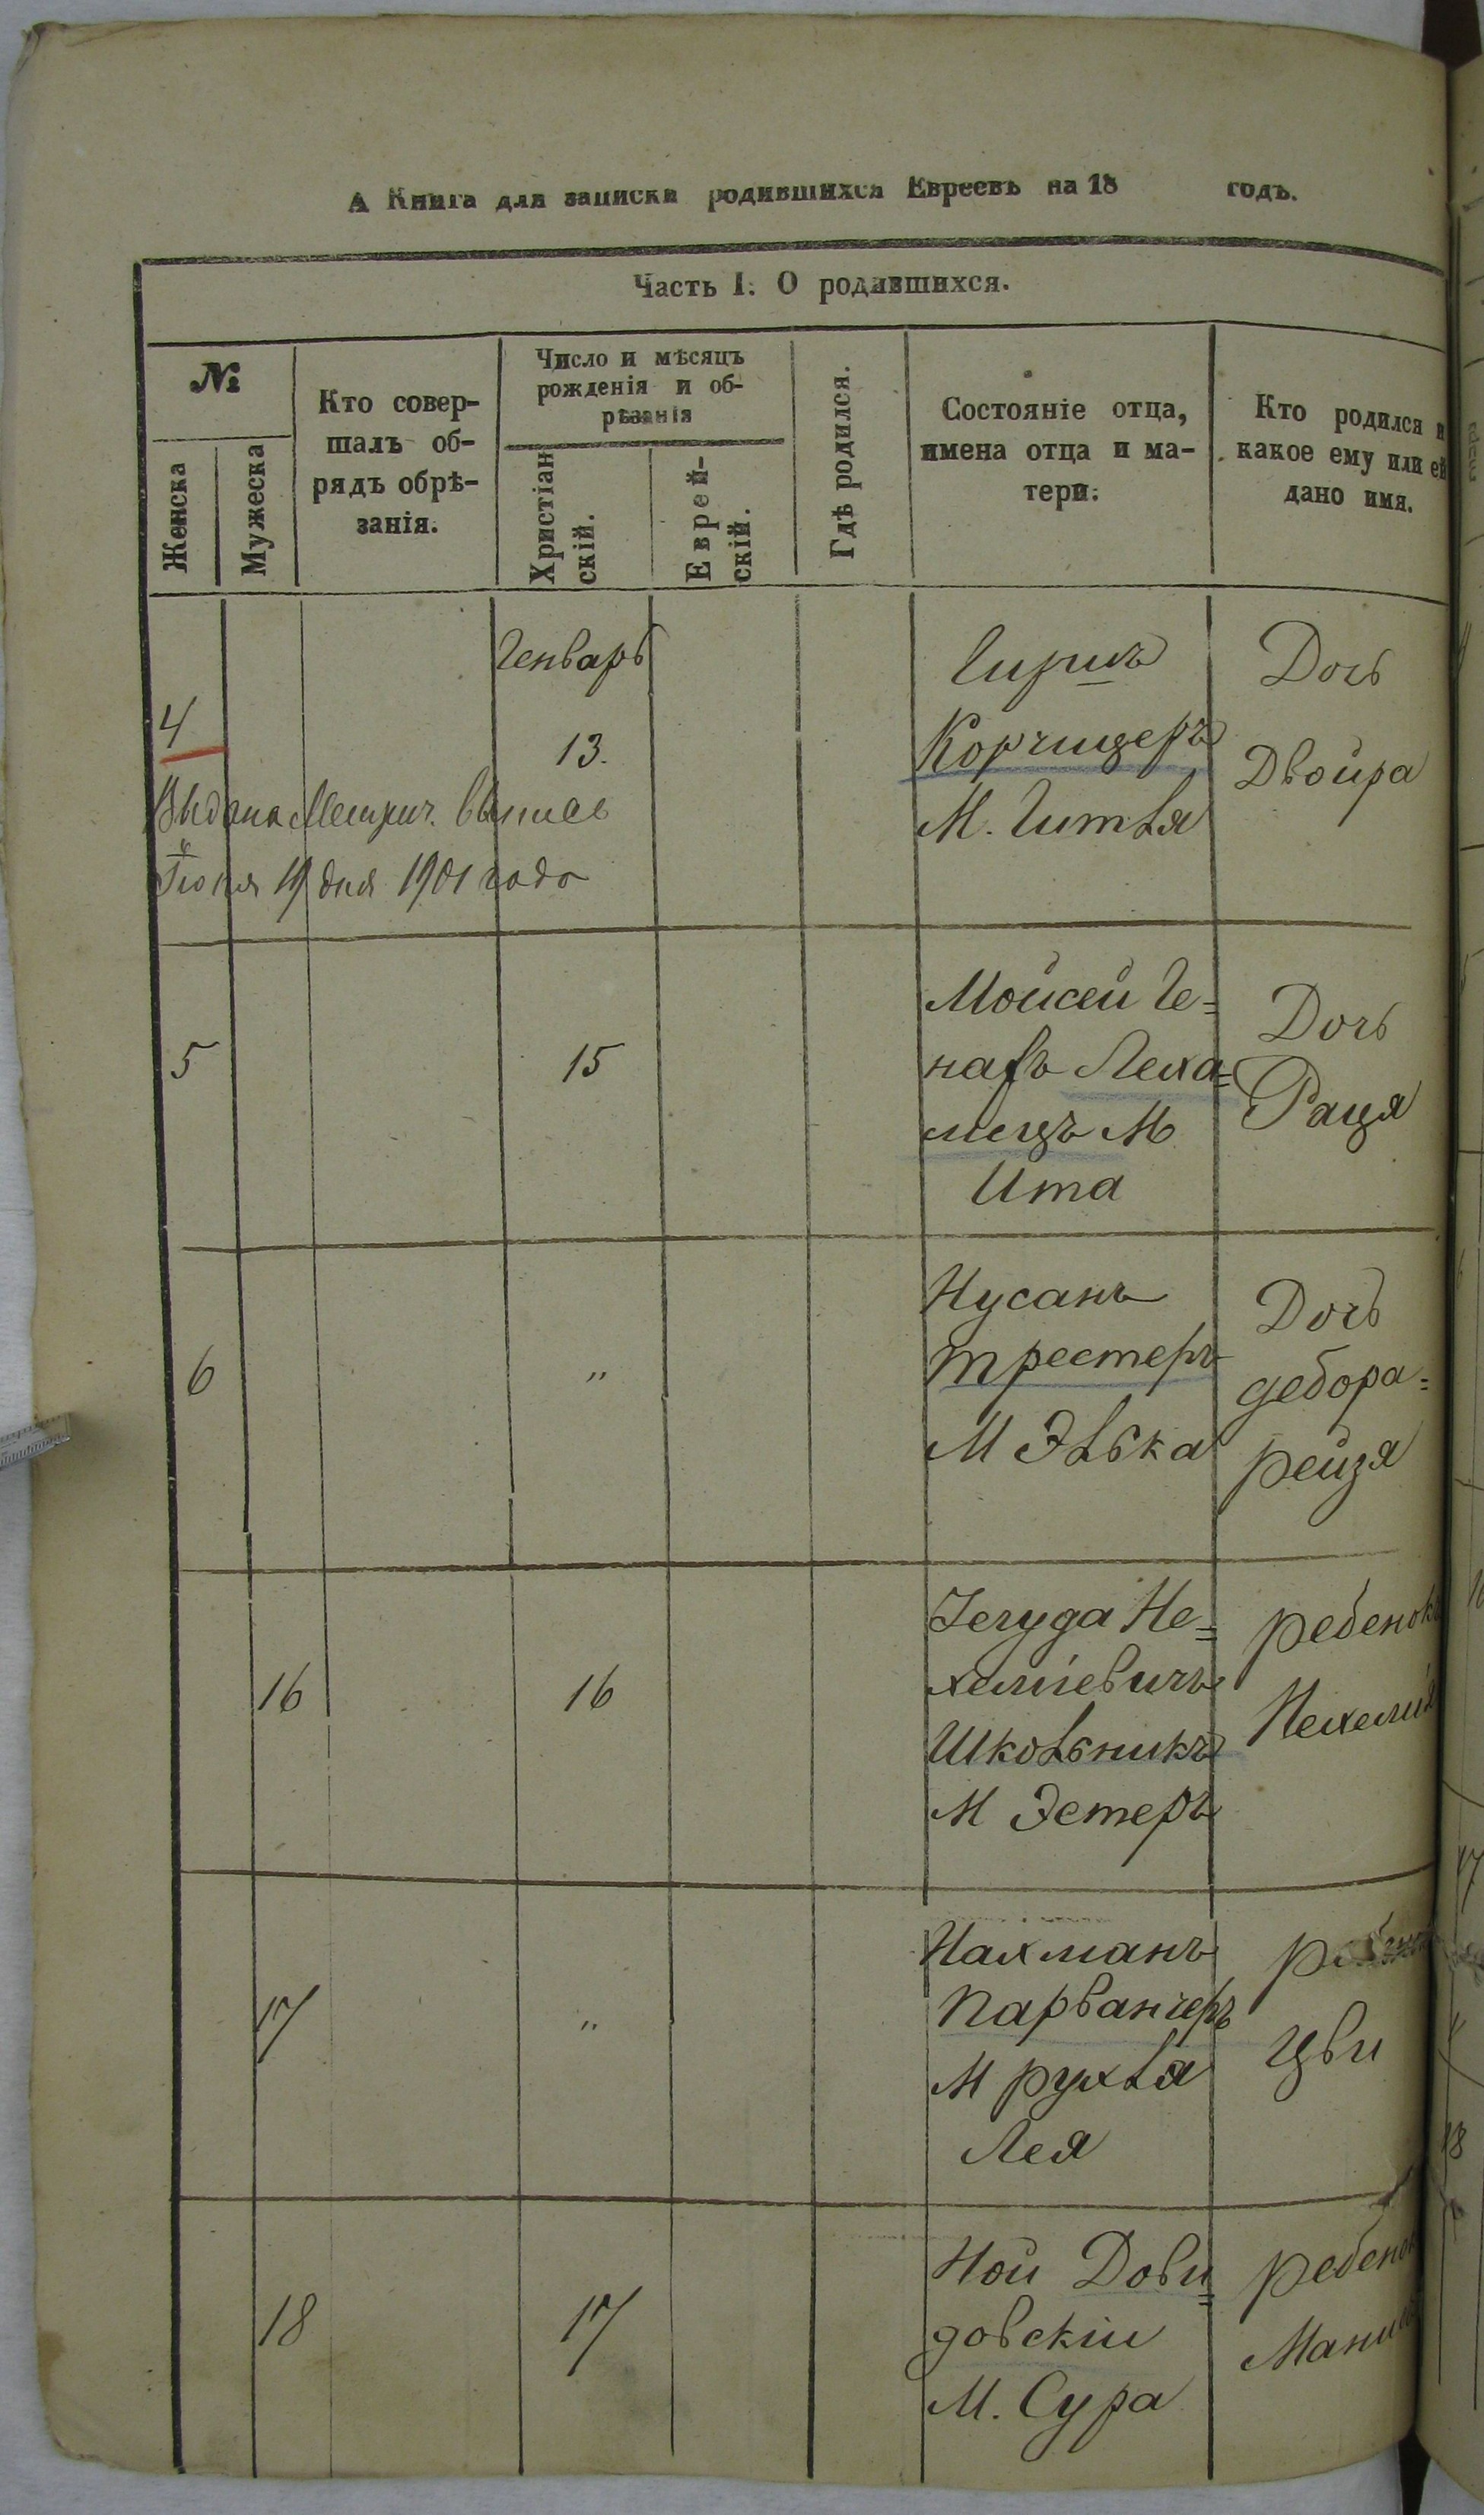 А Книга для записки родившихся Евреевъ на 18 годъ.
Часть I. О родившихся.
№
Женска
Мужеска
Кто совер-
шалъ об-
рядъ обрѣ-
занія.
Число и мѣсяцъ
рожденія и об-
рѣзанія
Христіан
скій.
Еврей-
скій.
Гдѣ родился.
Состояніе отца,
имена отца и ма-
тери.
Кто родился и
какое ему или ей
дано имя.
4
Генварь
13.
Гиршъ
Корчицеръ
М. Гитля
Дочь
Двойра
Выдана Метрич. выпись
Іюня 19 дня 1901 года
5
15
Мойсей Ге=
нахъ
мецъ М
Ита
Дочь
Раця
6
"
Нусанъ
трестеръ
М Элька
Дочь
дебора=
рейзя
16
16
Іегуда Не=
хеміевичъ
Школьникъ
М Эстеръ
ребенокъ
Нехемія
17
"
Нахманъ
Парванчеръ
М рухля
Лея
Цви
18
17
Ной Дови=
довскій
М. Сура
ребенок